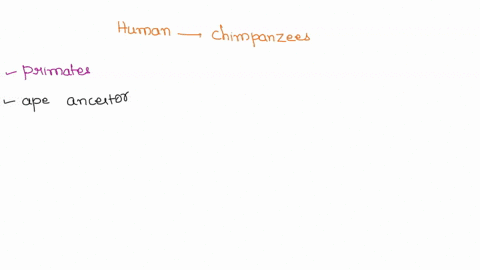 Human → chimpanzees
- primates
- ape ancestor